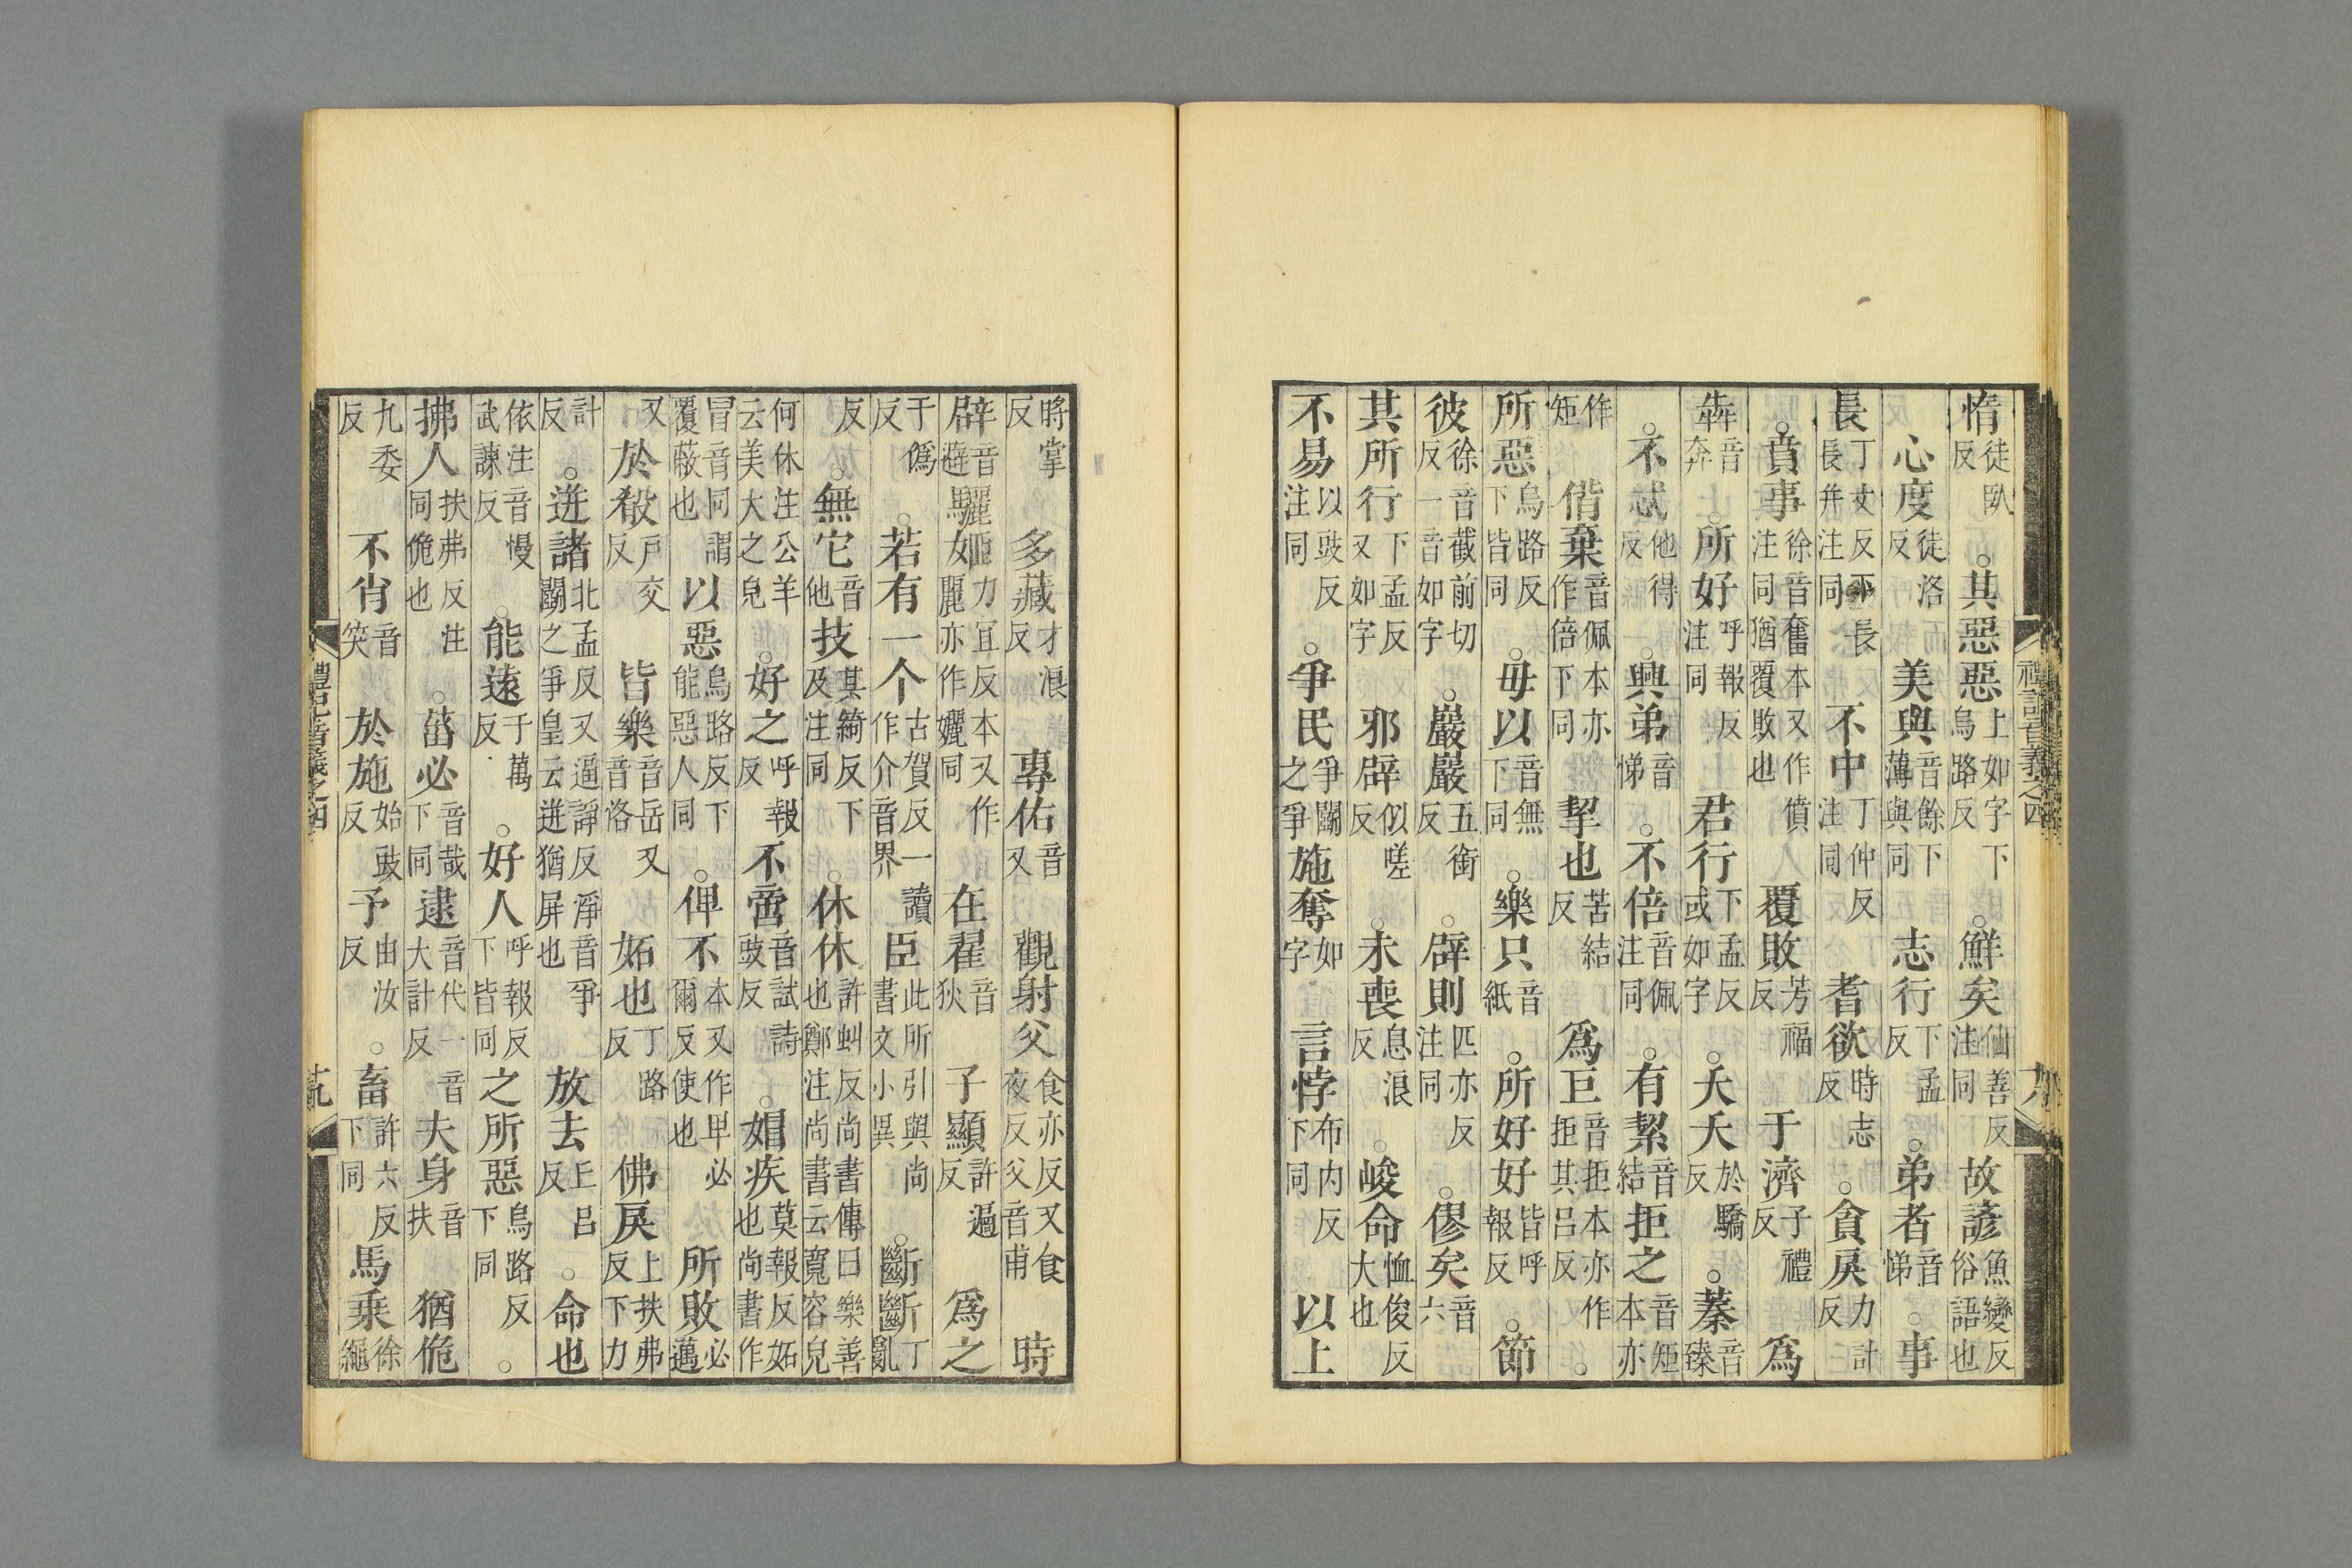 惰徒臥反。其惡惡上如字下烏路反。鮮矣仙善反注同故諺魚變反俗語也
心度徒洛反美與音餘下薄與同志行下孟反。弟者音悌。事
長丁丈反下長長并注同不中丁仲反注同耆欲時志反。貪戾力計反
。賁事徐音奮本又作僨注同猶覆敗也覆敗芳福反于濟子禮反爲
犇音奔。所好呼報反注同君行下孟反或如字。夭夭於驕反。蓁音臻
。不忒他得反。興弟音悌。不倍音佩注同。有絜音結拒之音矩本亦
作矩偝棄音佩本亦作倍下同挈也苦結反爲巨音拒本亦作拒其呂反。
所惡烏路反下皆同。毋以音無下同。樂只音紙。所好好皆呼報反。節
彼徐音截前切反一音如字。巖巖五銜反。辟則匹亦反注同。僇矣音六
其所行下孟反又如字邪辟似嗟反。未喪息浪反。峻命恤俊反大也
不易以豉反注同。爭民爭鬭之爭施奪如字言悖布内反下同以上
禮記音義之四
時掌反多藏才浪反專佑音又觀射父食亦反又食夜反父音甫時
辟音避驪姬力宜反本又作麗亦作孋同在翟音狄子顯許遍反爲之
于僞反。若有一个古賀反一讀作介音界臣此所引與尚書文小異。斷斷丁亂
反。無它音他技其綺反下及注同。休休許虯反尚書傳曰樂善也鄭注尚書云寬容皃
何休注公羊云美大之皃。好之呼報反不啻音試詩豉反。媢疾莫報反妬也尚書作
冒音同謂覆蔽也以惡烏路反下能惡人同。俾不本又作卑必爾反使也所敗必邁
又於殽戶交反皆樂音岳又音洛妬也丁路反佛戾上扶弗反下力
計反。迸諸北孟反又逼諍反諍音爭鬭之爭皇云迸猶屏也放去丘呂反。命也
依注音慢武諫反。能遠于萬反。好人呼報反下皆同之所惡烏路反下同。
拂人扶弗反注同佹也。菑必音哉下同逮音代一音大計反夫身音扶猶佹
九委反不肖音笑於施始豉反予由汝反。畜許六反下同馬乘徐繩
禮記音義之四